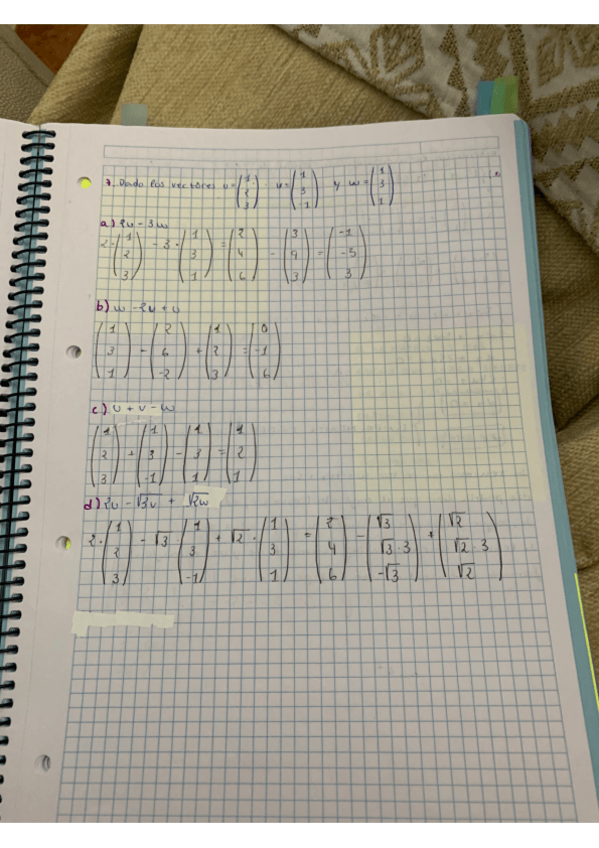 7. Dado los vectores u = (1 2 3) v = (1 3 -1) y w = (1 3 1)
a) 2u - 3w
2·(1 2 3) - 3·(1 3 1) = (2 4 6) - (3 9 3) = (-1 -5 3)
b) w - 2v + u
(1 3 1) - (2 6 -2) + (1 2 3) = (0 -1 6)
c) u + v - w
(1 2 3) + (1 3 -1) - (1 3 1) = (1 2 1)
d) 2u - √3v + √2w
2·(1 2 3) - √3·(1 3 -1) + √2·(1 3 1) = (2 4 6) - (√3 √3·3 -√3) + (√2 √2·3 √2)